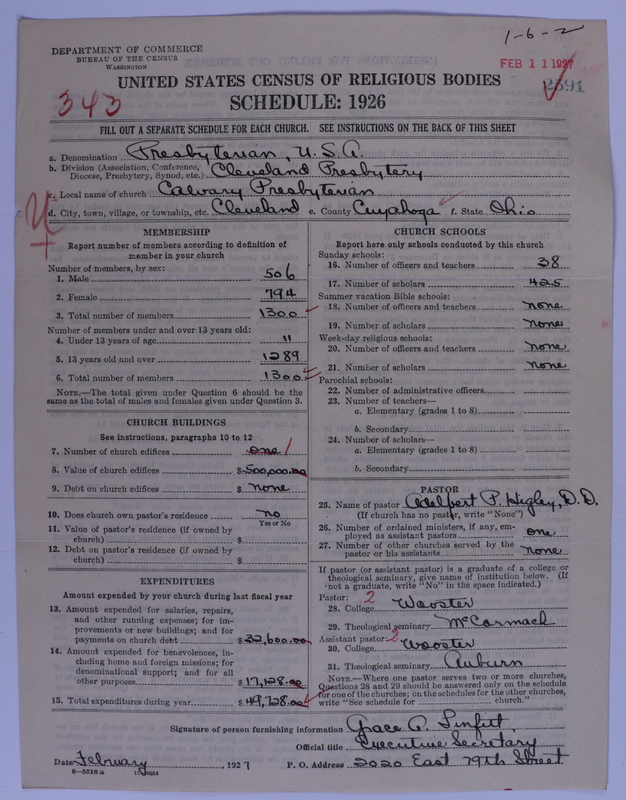 1-6-2
DEPARTMENT OF COMMERCE
BUREAU OF THE CENSUS
WASHINGTON
FEB 11 1927
2591
UNITED STATES CENSUS OF RELIGIOUS BODIES
343
SCHEDULE: 1926
FILL OUT A SEPARATE SCHEDULE FOR EACH CHURCH. SEE INSTRUCTIONS ON THE BACK OF THIS SHEET
a. Denomination Presbyterian, U.S.A.
b. Division (Association, Conference, Diocese, Presbytery, Synod, etc.) Cleveland Presbytery
c. Local name of church Calvary Presbyterian
d. City, town, village, or township, etc. Cleveland e. County Cuyahoga f. State Ohio
MEMBERSHIP
Report number of members according to definition of
member in your church
Number of members, by sex:
1. Male 506
2. Female 794
3. Total number of members 1300
Number of members under and over 13 years old:
4. Under 13 years of age 11
5. 13 years old and over 1289
6. Total number of members 1300
NOTE.—The total given under Question 6 should be
same as the total of males and females given under Question 3.
CHURCH BUILDINGS
See instructions, paragraphs 10 to 12
7. Number of church edifices one 1
8. Value of church edifices $500,000.00
9. Debt on church edifices $ none
10. Does church own pastor's residence no
Yes or No
11. Value of pastor's residence (if owned by
church) $
12. Debt on pastor's residence (if owned by
church) $
EXPENDITURES
Amount expended by your church during last fiscal year
13. Amount expended for salaries, repairs,
and other running expenses; for im-
provements or new buildings; and for
payments on church debt $32,600.00
14. Amount expended for benevolences, in-
cluding home and foreign missions; for
denominational support; and for all
other purposes $17,128.00
15. Total expenditures during year $49,728.00
CHURCH SCHOOLS
Report here only schools conducted by this church
Sunday schools:
16. Number of officers and teachers 38
17. Number of scholars 425
Summer vacation Bible schools:
18. Number of officers and teachers none
19. Number of scholars none
Week-day religious schools:
20. Number of officers and teachers none
21. Number of scholars none
Parochial schools:
22. Number of administrative officers
23. Number of teachers—
a. Elementary (grades 1 to 8)
b. Secondary
24. Number of scholars—
a. Elementary (grades 1 to 8)
b. Secondary
PASTOR
25. Name of pastor Adelbert P. Higley, D.D.
(If church has no pastor, write "None")
26. Number of ordained ministers, if any, em-
ployed as assistant pastors one
27. Number of other churches served by the
pastor or his assistants none
If pastor (or assistant pastor) is a graduate of a college or
theological seminary, give name of institution below. (If
not a graduate, write "No" in the space indicated.)
Pastor: 2
28. College Wooster
29. Theological seminary McCormack
Assistant pastor: 2
30. College Wooster
31. Theological seminary Auburn
NOTE.—Where one pastor serves two or more churches,
Questions 28 and 29 should be answered only on the schedule
for one of the churches; on the schedules for the other churches,
write "See schedule for church."
Signature of person furnishing information Grace A.
Official title Executive Secretary
Date February, 1927 P. O. Address 2020 East 79th Street